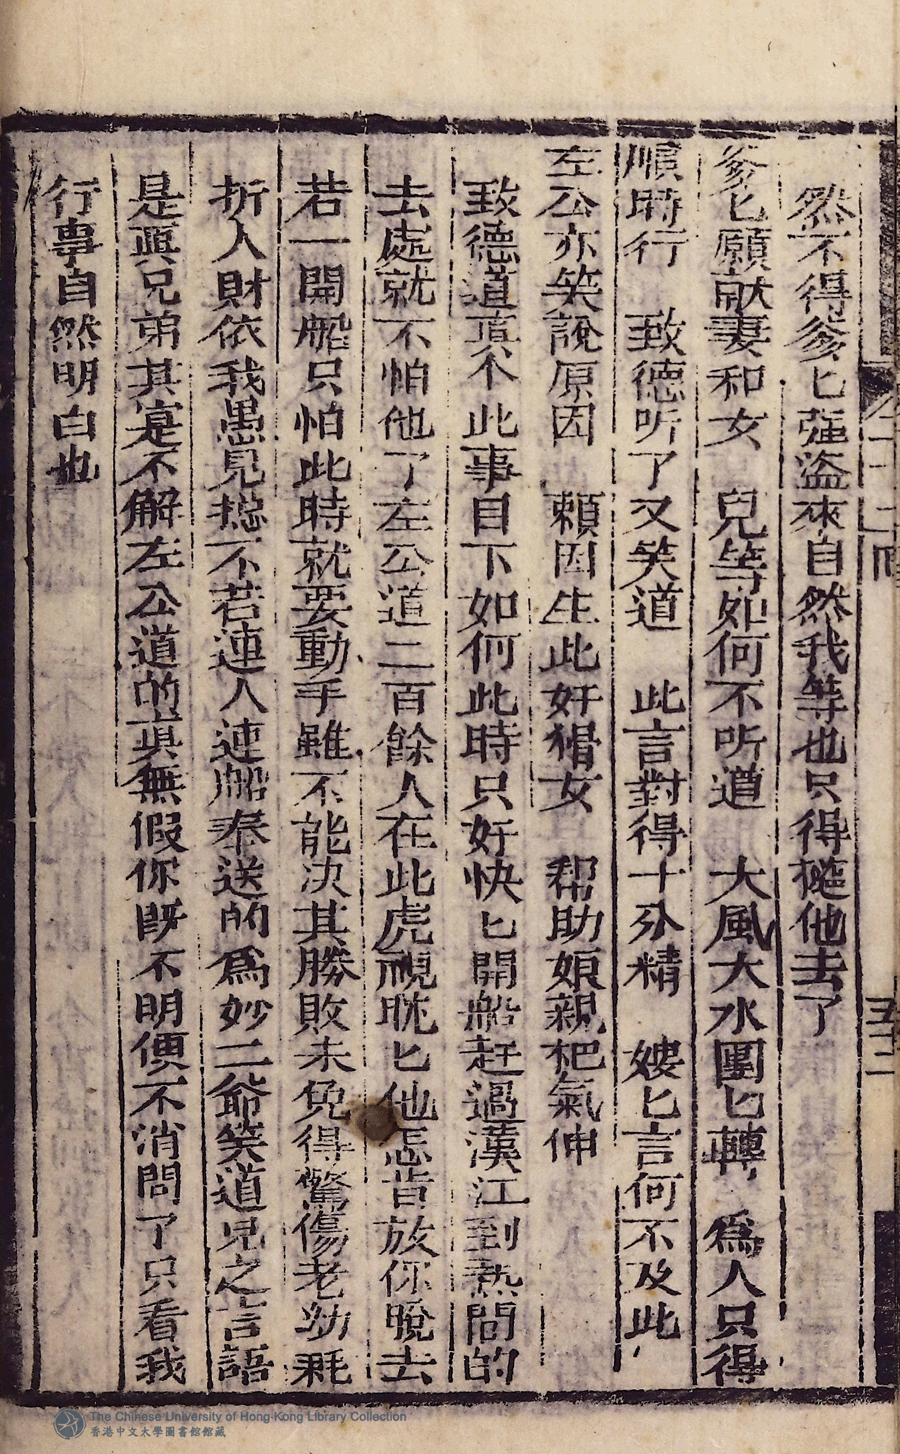 然不得爹匕强盗來自然我等也只得随他去了
爹匕願献妻和女　兒等如何不听道　大風大水團匕轉　為人只得
順時行　致德听了又笑道　此言對得十分精　婁匕言何不及此
左公亦笑說原因　賴因生此奸猾女　帮助娘親把氣伸
致德道真个此事目下如何此時只好快匕開船赶過漢江到热閙的
去處就不怕他了左公道二百餘人在此虎視眈匕他怎肯放你脫去
若一開船只怕此時就要動手雖不能决其勝敗未免得驚傷老幼耗
折人財依我愚見揔不若連人連船奉送的為妙二爺笑道兄之言語
是與兄弟其寔不解左公道的真無假你既不明便不消問了只看我
行事自然明白也
五十二
The Chinese University of Hong Kong Library Collection
香港中文大學圖書館館藏